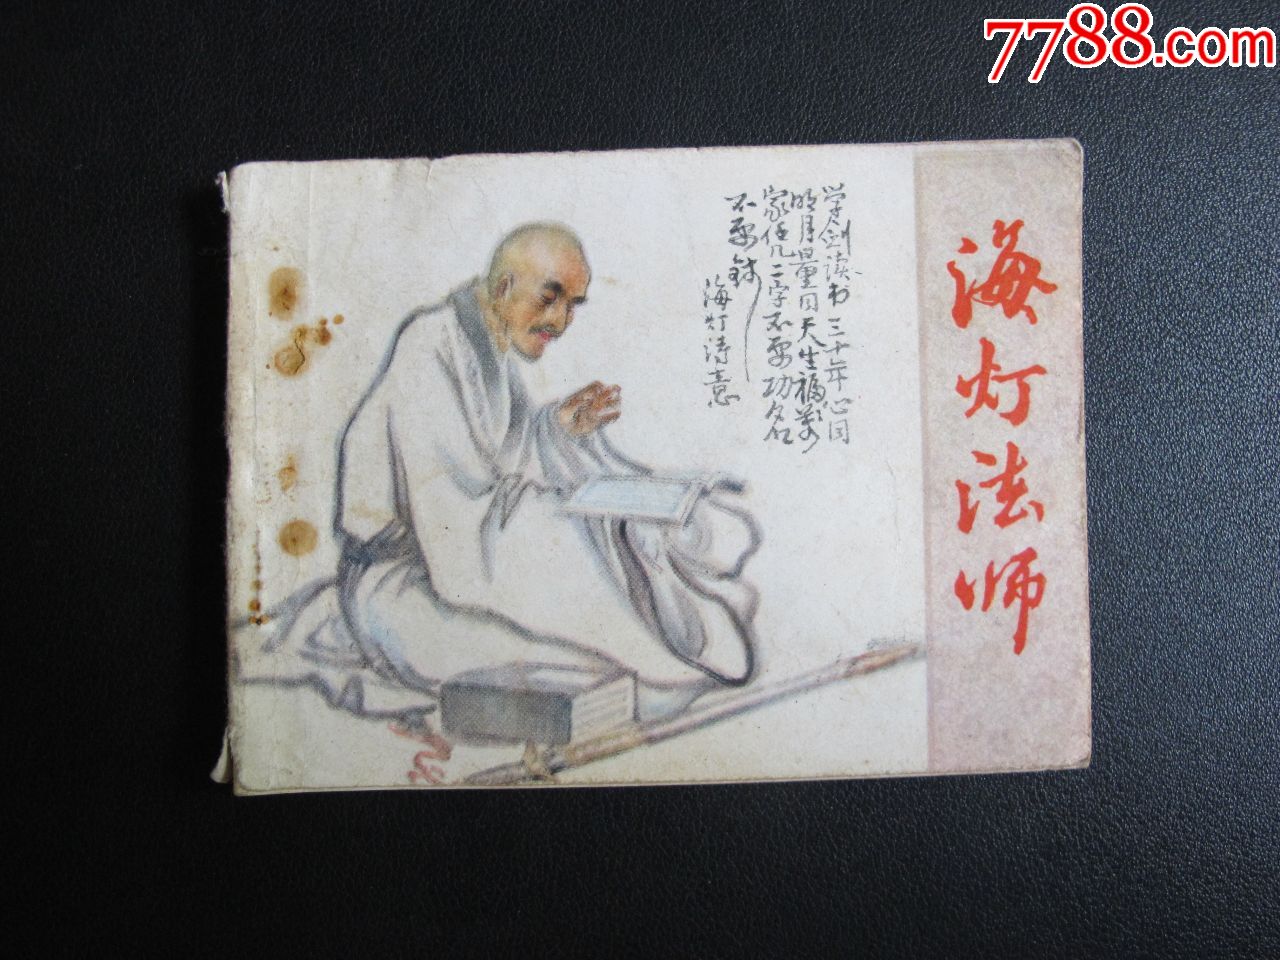 7788.com
海灯法师
学剑读书三十年心同
明月量同天生福万
家任几二字不要功名
不要钱
海灯诗意